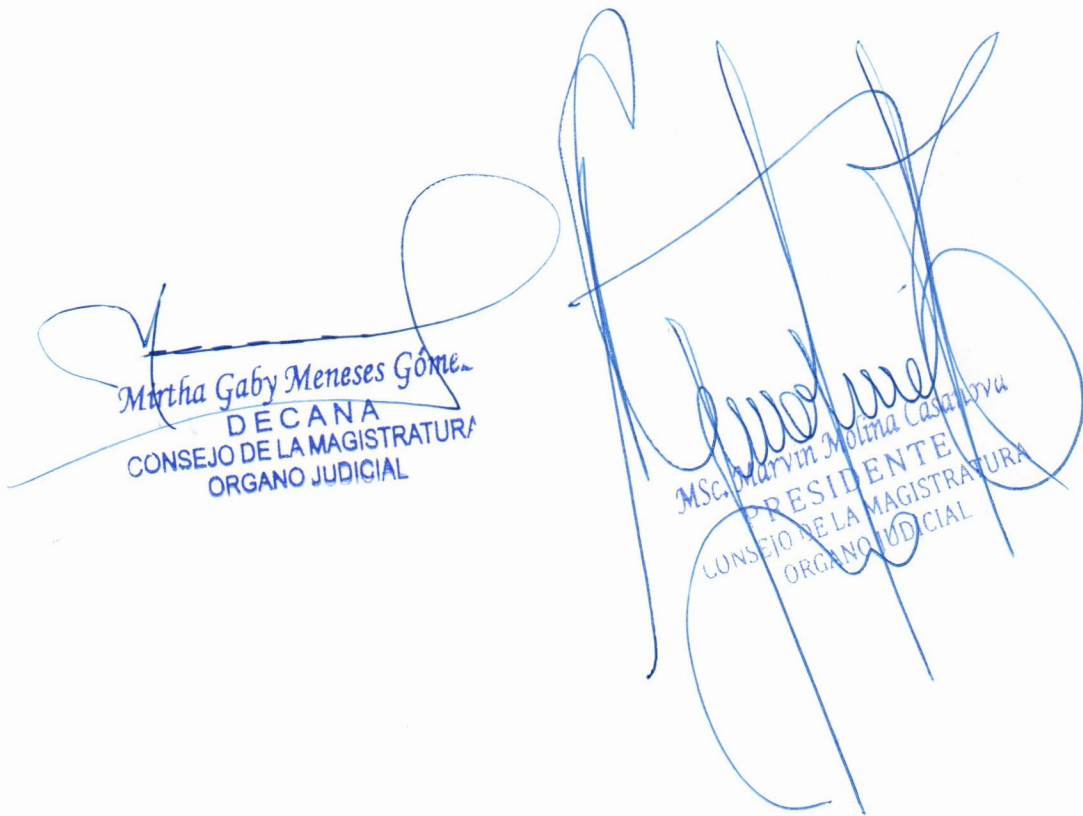 Mirtha Gaby Meneses Góme
DECANA
CONSEJO DE LA MAGISTRATURA
ORGANO JUDICIAL
MSc. Marvin Molina Casanova
PRESIDENTE
CONSEJO DE LA MAGISTRATURA
ORGANO JUDICIAL